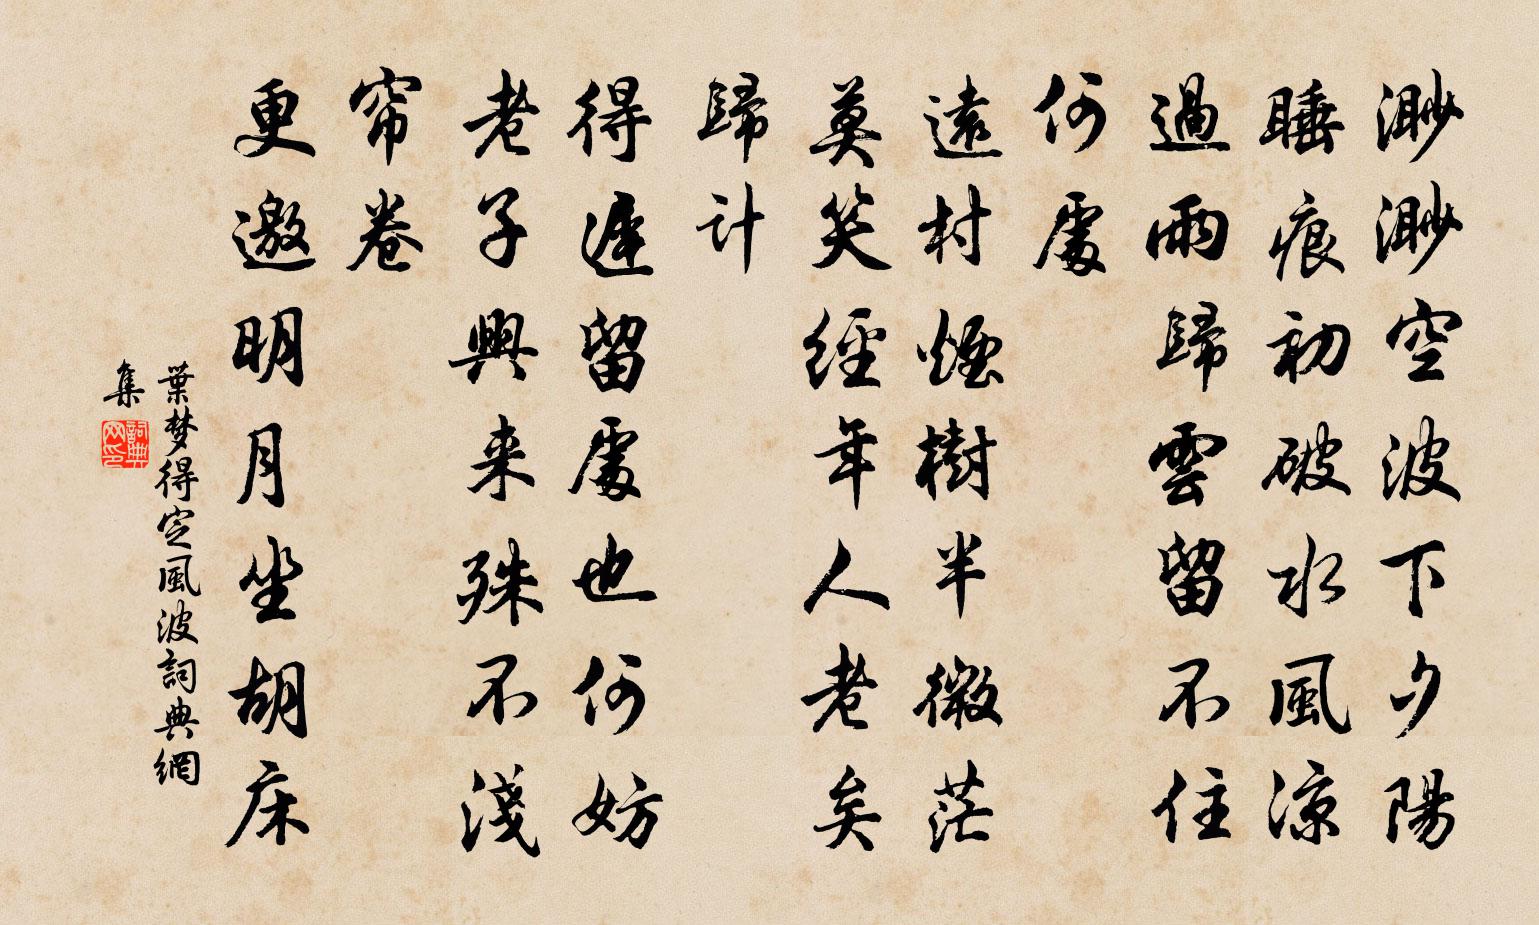 渺渺空波下夕陽
睡痕初破水風涼
過雨歸雲留不住
何處
遠村煙樹半微茫
莫笑經年人老矣
歸计
得遲留處也何妨
老子興来殊不淺
帘卷
更邀明月坐胡床
葉梦得定風波詞典網
集
詞典
网印